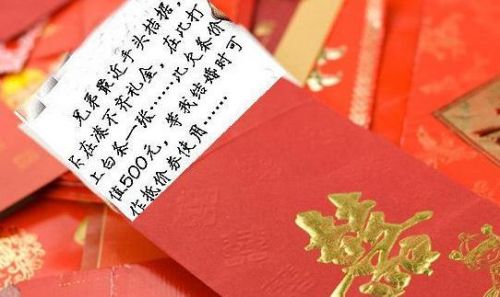 兄弟最近手头拮据,
实在凑不齐礼金,在此打
上白条一张……此欠条价
值500元,等我结婚时可
作抵价券使用……
囍